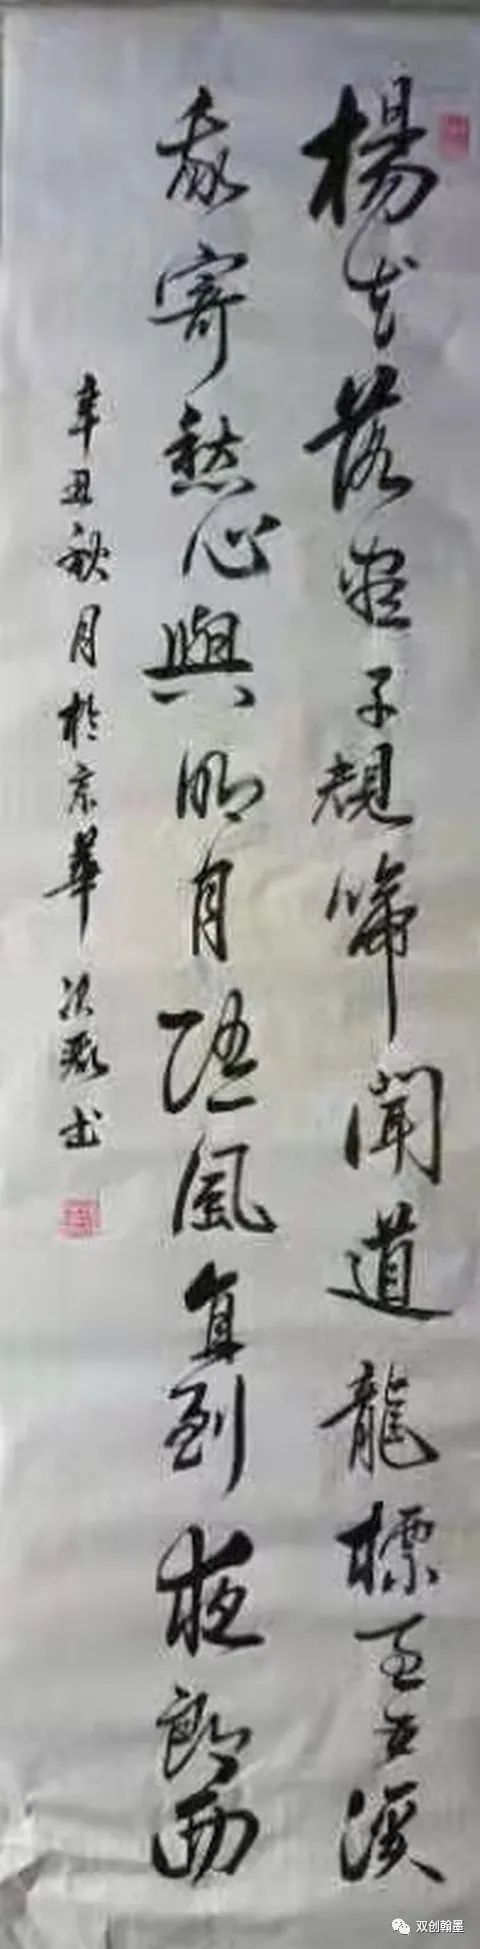 楊花落盡子規啼聞道龍標過五溪
我寄愁心與明月随風直到夜郎西
辛丑秋月於京華書
双创翰墨